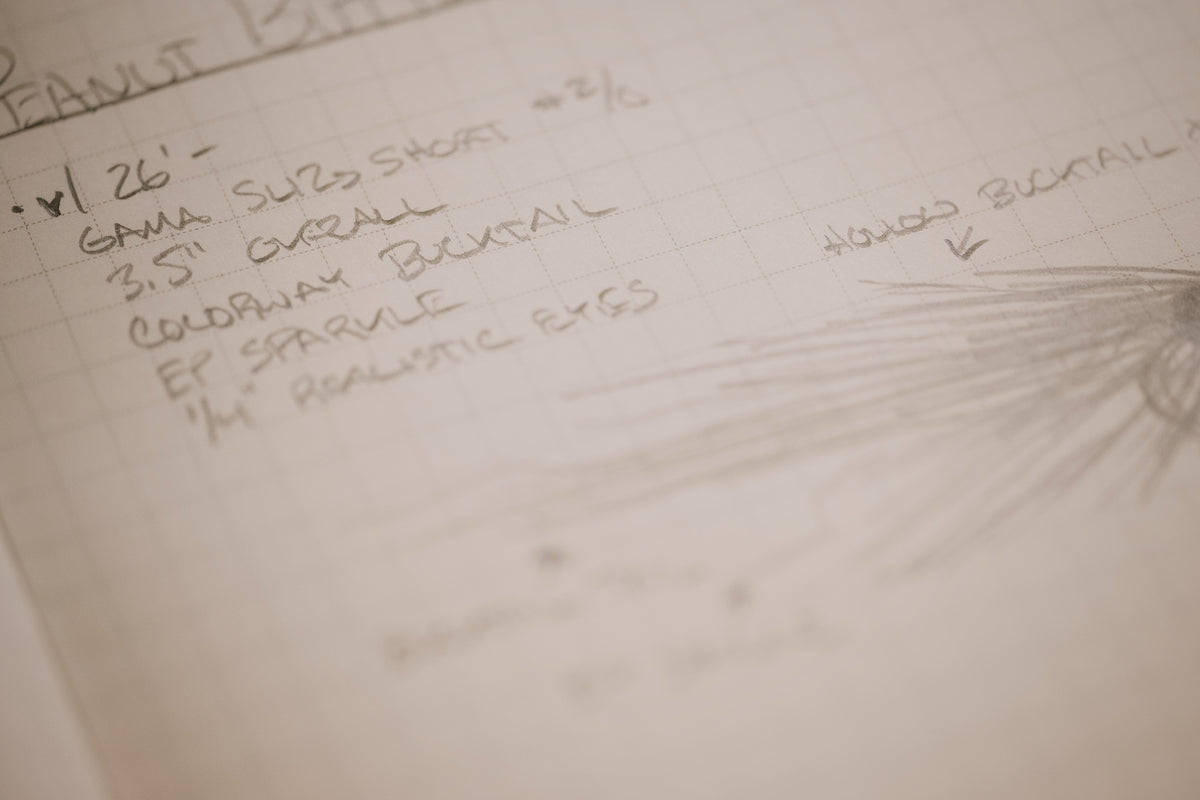 PEANUT
• v1 26' –
GAMA SL12S SHORT #2/0
3.5" OVERALL
COLORWAY BUCKTAIL
EP SPARKLE
1/4" REALISTIC EYES
HOLLOW BUCKTAIL